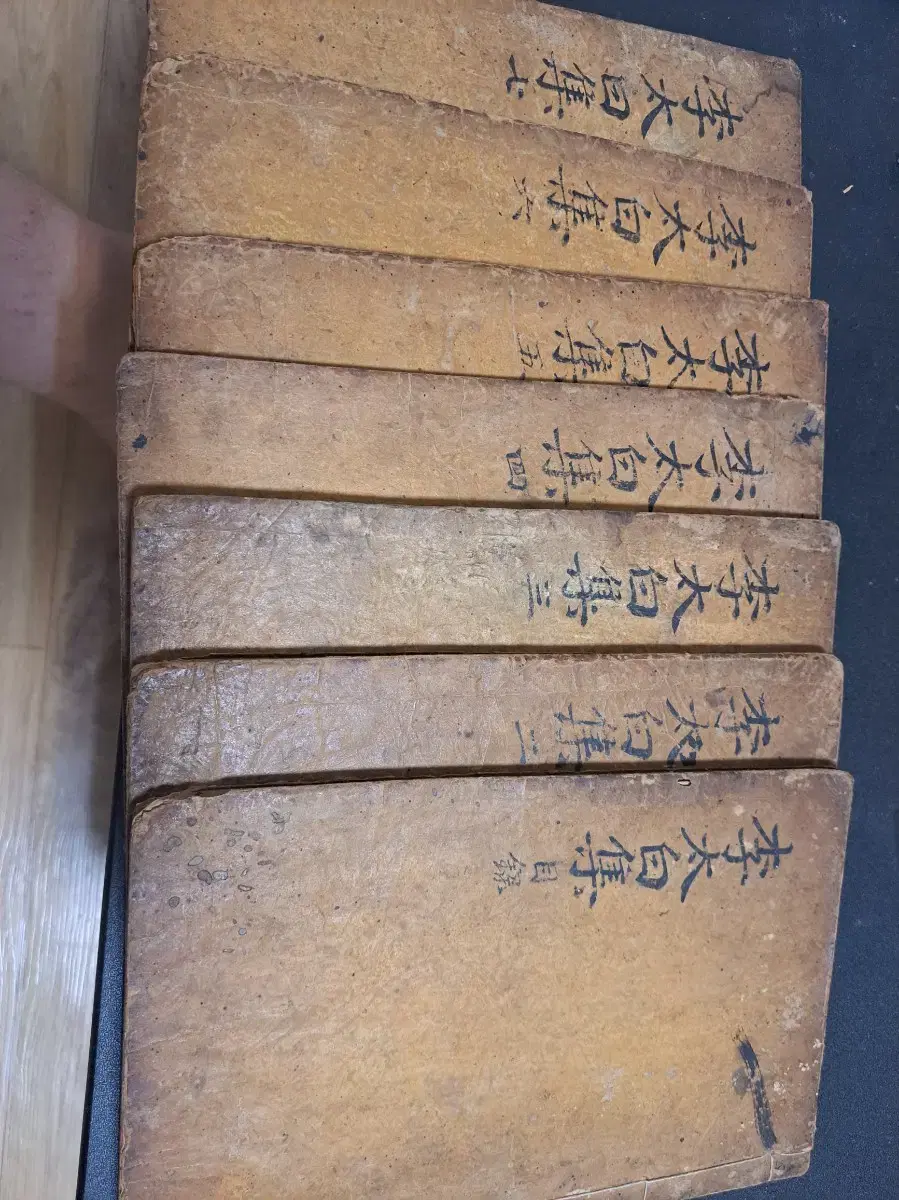 李太白集七
李太白集六
李太白集五
李太白集四
李太白集三
李太白集二
李太白集目錄